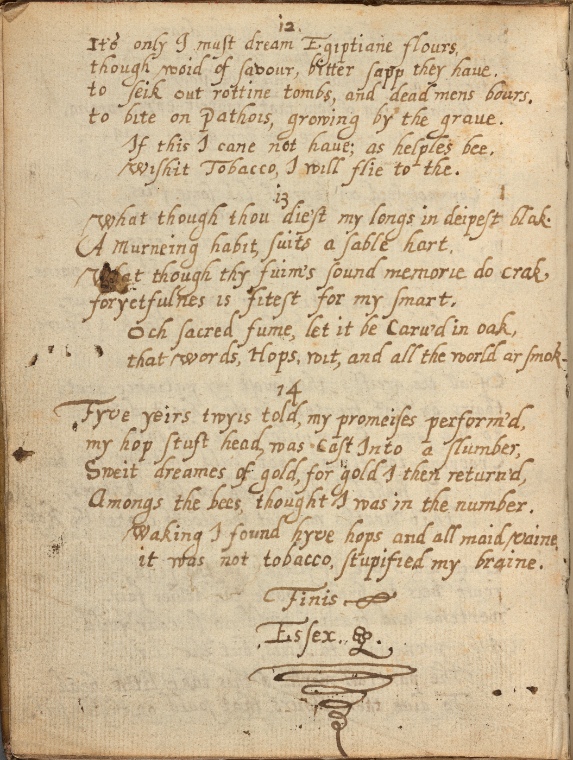 12
It's only I must dream Egiptiane flours,
though void of savour, bitter sapp they have.
to seik out rottine tombs, and dead mens bours.
to bite on Pathois, growing by the grave.
If this I cane not have; as helples bee,
Wishit Tobacco, I will flie to the.
13
What though thou diest my longs in deipest blak.
A Murneing habit, suits a sable hart.
What though thy fuim's sound memorie do crak,
foryetfulnes is fitest for my smart.
Och sacred fume, let it be Carw'd in oak,
that words, Hops, wit, and all the world ar smok.
14
Fyve yeirs twyis told, my promeises perform'd,
my hop stuft head, was cast Into a slumber,
Sweit dreames of gold, for gold I then return'd,
Amongs the bees, thought I was in the number.
Waking I found hyve hops and all maid vaine,
it was not tobacco, stupified my braine.
Finis
Essex.